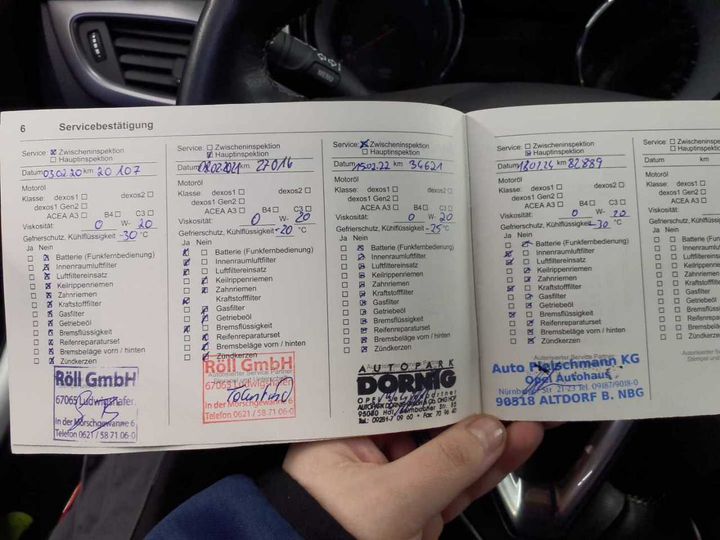 6 Servicebestätigung
Service: ☒ Zwischeninspektion
☐ Hauptinspektion
Datum 03.02.20 km 20 107
Motoröl
Klasse: dexos1 ☐ dexos2 ☐
dexos1 Gen2 ☐
ACEA A3 ☐ B4 ☐ C3 ☐
Viskosität: 0 W- 20
Gefrierschutz, Kühlflüssigkeit -30 °C
Ja Nein
Batterie (Funkfernbedienung)
Innenraumluftfilter
Luftfiltereinsatz
Keilrippenriemen
Zahnriemen
Kraftstofffilter
Gasfilter
Getriebeöl
Bremsflüssigkeit
Reifenreparaturset
Bremsbeläge vorn / hinten
Zündkerzen
Röll GmbH
67065 Ludwigshafen
In der Mörschgewanne 6
Telefon 0621 / 58 71 06-0
Service: ☐ Zwischeninspektion
☒ Hauptinspektion
Datum km 27016
Motoröl
Klasse: dexos1 ☐ dexos2 ☐
dexos1 Gen2 ☐
ACEA A3 ☐ B4 ☐ C3 ☐
Viskosität: 0 W- 20
Gefrierschutz, Kühlflüssigkeit -20 °C
Ja Nein
Batterie (Funkfernbedienung)
Innenraumluftfilter
Luftfiltereinsatz
Keilrippenriemen
Zahnriemen
Kraftstofffilter
Gasfilter
Getriebeöl
Bremsflüssigkeit
Reifenreparaturset
Bremsbeläge vorn / hinten
Zündkerzen
Autorisierter Service Partner
Röll GmbH
67065 Ludwigshafen
In der Mörschgewanne 6
Telefon 0621 / 58 71 06-0
Service: ☒ Zwischeninspektion
☐ Hauptinspektion
Datum 15.02.22 km 34621
Motoröl
Klasse: dexos1 ☐ dexos2 ☐
dexos1 Gen2 ☐
ACEA A3 ☐ B4 ☐ C3 ☐
Viskosität: 0 W- 20
Gefrierschutz, Kühlflüssigkeit -25 °C
Ja Nein
Batterie (Funkfernbedienung)
Innenraumluftfilter
Luftfiltereinsatz
Keilrippenriemen
Zahnriemen
Kraftstofffilter
Gasfilter
Getriebeöl
Bremsflüssigkeit
Reifenreparaturset
Bremsbeläge vorn / hinten
Zündkerzen
AUTOPARK
DORNIG
Service: ☐ Zwischeninspektion
☒ Hauptinspektion
Datum 18.01.24 km 82889
Motoröl
Klasse: dexos1 ☐ dexos2 ☐
dexos1 Gen2 ☐
ACEA A3 ☐ B4 ☐ C3 ☐
Viskosität: 0 W- 20
Gefrierschutz, Kühlflüssigkeit -30 °C
Ja Nein
Batterie (Funkfernbedienung)
Innenraumluftfilter
Luftfiltereinsatz
Keilrippenriemen
Zahnriemen
Kraftstofffilter
Gasfilter
Getriebeöl
Bremsflüssigkeit
Reifenreparaturset
Bremsbeläge vorn / hinten
Zündkerzen
Autorisierter Service Partner
Auto Fleischmann KG
Opel Autohaus
Nürnberger Str. 21-23 Tel. 09187/9018-0
90518 ALTDORF B. NBG
Service: ☐
☐
Datum
Motoröl
Klasse:
Viskosität:
Gefrierschutz,
Ja Nein
MENU